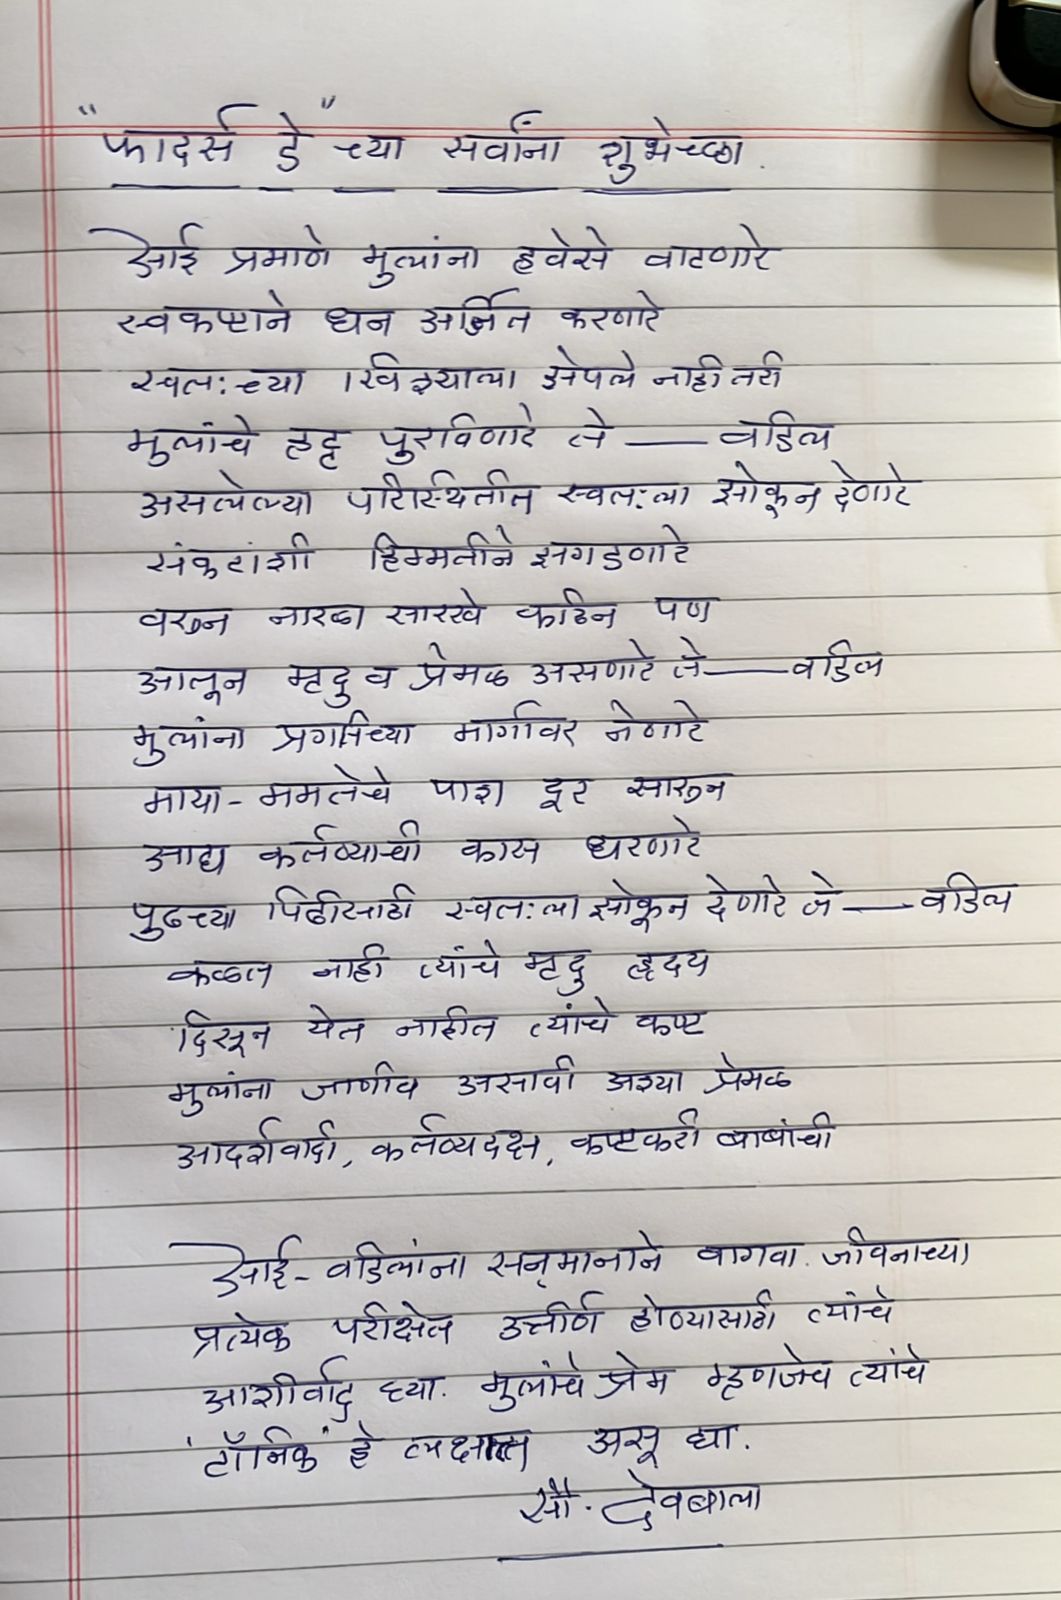 "फादर्स डे" च्या सर्वांना शुभेच्छा.
आई प्रमाणे मुलांना हवेसे वाटणारे
स्वकष्टाने धन अर्जित करणारे
स्वतःच्या खिश्याला झेपले नाही तरी
मुलांचे हट्ट पुरविणारे ते — वडिल
असलेल्या परिस्थितीत स्वतःला झोकून देणारे
संकटांशी हिम्मतीने झगडणारे
वरुन नारळा सारखे कठिन पण
आतून मृदु व प्रेमळ असणारे ते — वडिल
मुलांना प्रगतिच्या मार्गावर नेणारे
माया - ममतेचे पाश दूर सारुन
आद्य कर्तव्याची कास धरणारे
पुढच्या पिढीसाठी स्वतःला झोकून देणारे जे — वडिल
कळत नाही त्यांचे मृदु हृदय
दिसून येत नाहीत त्यांचे कष्ट
मुलांना जाणीव असावी अश्या प्रेमळ
आदर्शवादी, कर्तव्यदक्ष, कष्टकरी बाबांची
आई - वडिलांना सन्मानाने वागवा. जीवनाच्या
प्रत्येक परीक्षेत उत्तीर्ण होण्यासाठी त्यांचे
आशीर्वाद घ्या. मुलांचे प्रेम म्हणजेच त्यांचे
'टॉनिक' हे लक्षात असू द्या.
सौ. देवबाला